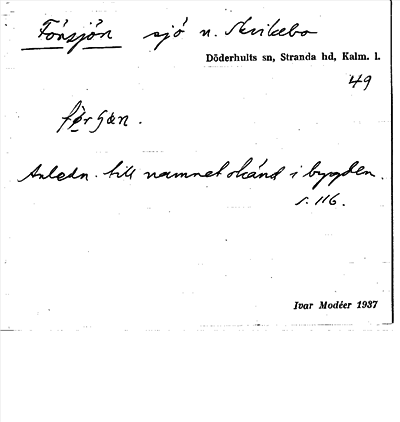 Försjön sjö n. Skvikebo
Döderhults sn, Stranda hd, Kalm. l.
49
Anledn. till namnet okänd i bygden.
s. 116.
Ivar Modéer 1937